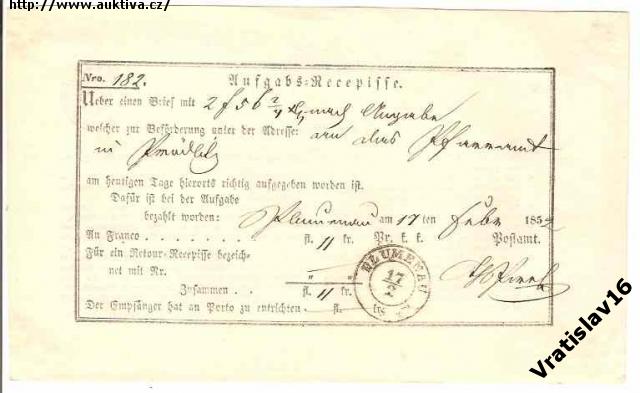 http://www.auktiva.cz/
Nro. 182. Aufgabs-Recepisse.
Ueber einen Brief mit 2 f 56 nach Angabe
welcher zur Beförderung unter der Adresse: an das Pfarramt
in
am heutigen Tage hierorts richtig aufgegeben worden ist.
Dafür ist bei der Aufgabe
bezahlt worden: Plumenau am 17ten Febr 185
An Franco . . . . . . . fl. 11 kr. Pr. k. k. Postamt.
Für ein Retour-Recepisse bezeich-
net mit Nr. " "
Zusammen . . fl. 11 kr.
Der Empfänger hat an Porto zu entrichten fl. kr.
PLUMENAU
17
2
Vratislav16